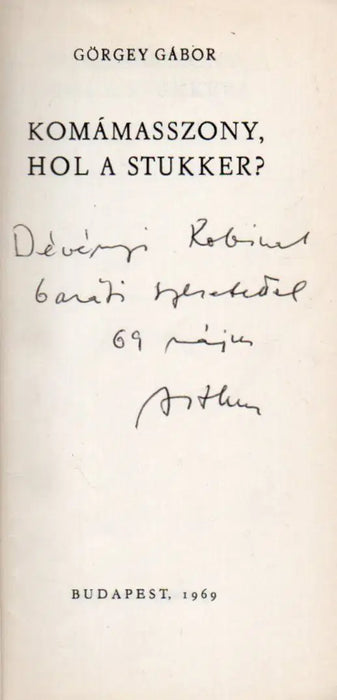 GÖRGEY GÁBOR
KOMÁMASSZONY,
HOL A STUKKER?
Dévényi Robinak
baráti szeretettel
69 május
BUDAPEST, 1969